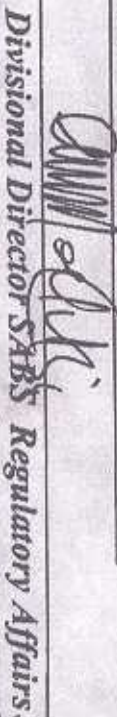 Divisional Director SABS Regulatory Affairs